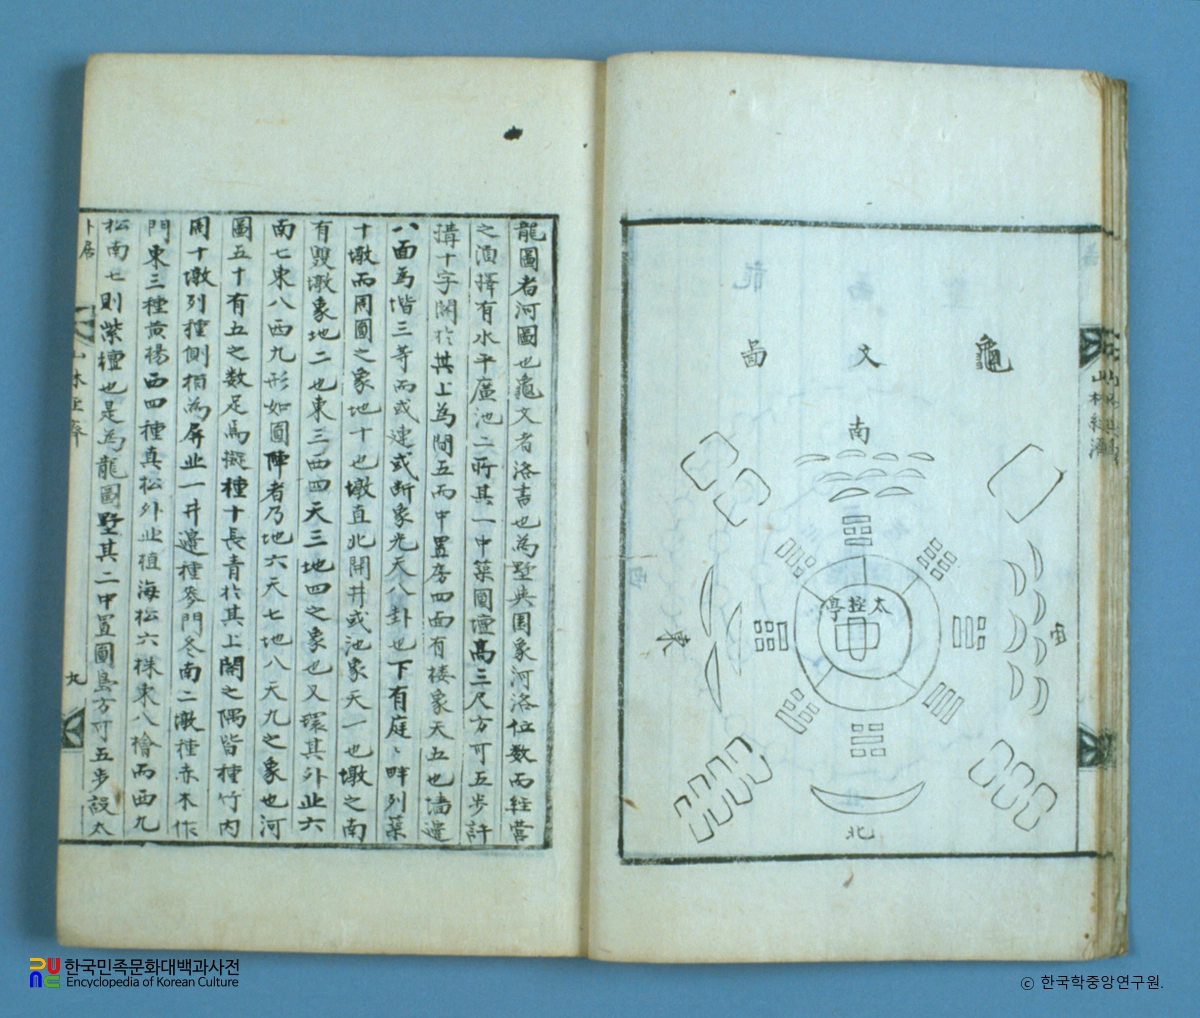 龜文圖
南
太極亭
中
東
西
北
山林經濟
龍圖者河圖也龜文者洛書也為墅與園象河洛位數而經營
之須擇有水平廣池二所其一中築圓壇高三尺方可五步許
溝十字閣於其上為間五而中置房四面有樓象天五也墻邊
八面為階三等而或建或斷象先天八卦也下有庭庭畔列築
十墩而周圓之象地十也墩直北開井或池象天一也墩之南
有雙墩象地二也東三西四天三地四之象也又環其外止六
南七東八西九形如圓陣者乃地六天七地八天九之象也河
圖五十有五之數足焉擬種十長青於其上閣之隅皆種竹內
周十墩列種側栢為屏止一井邊種麥門冬南二墩種赤木作
門東三種黃楊西四種真松外止植海松六株東八檜而西九
松南七則紫檀也是為龍圖墅其二中置圓島方可五步設太
卜居
山林經齊
九
한국민족문화대백과사전
Encyclopedia of Korean Culture
ⓒ 한국학중앙연구원.